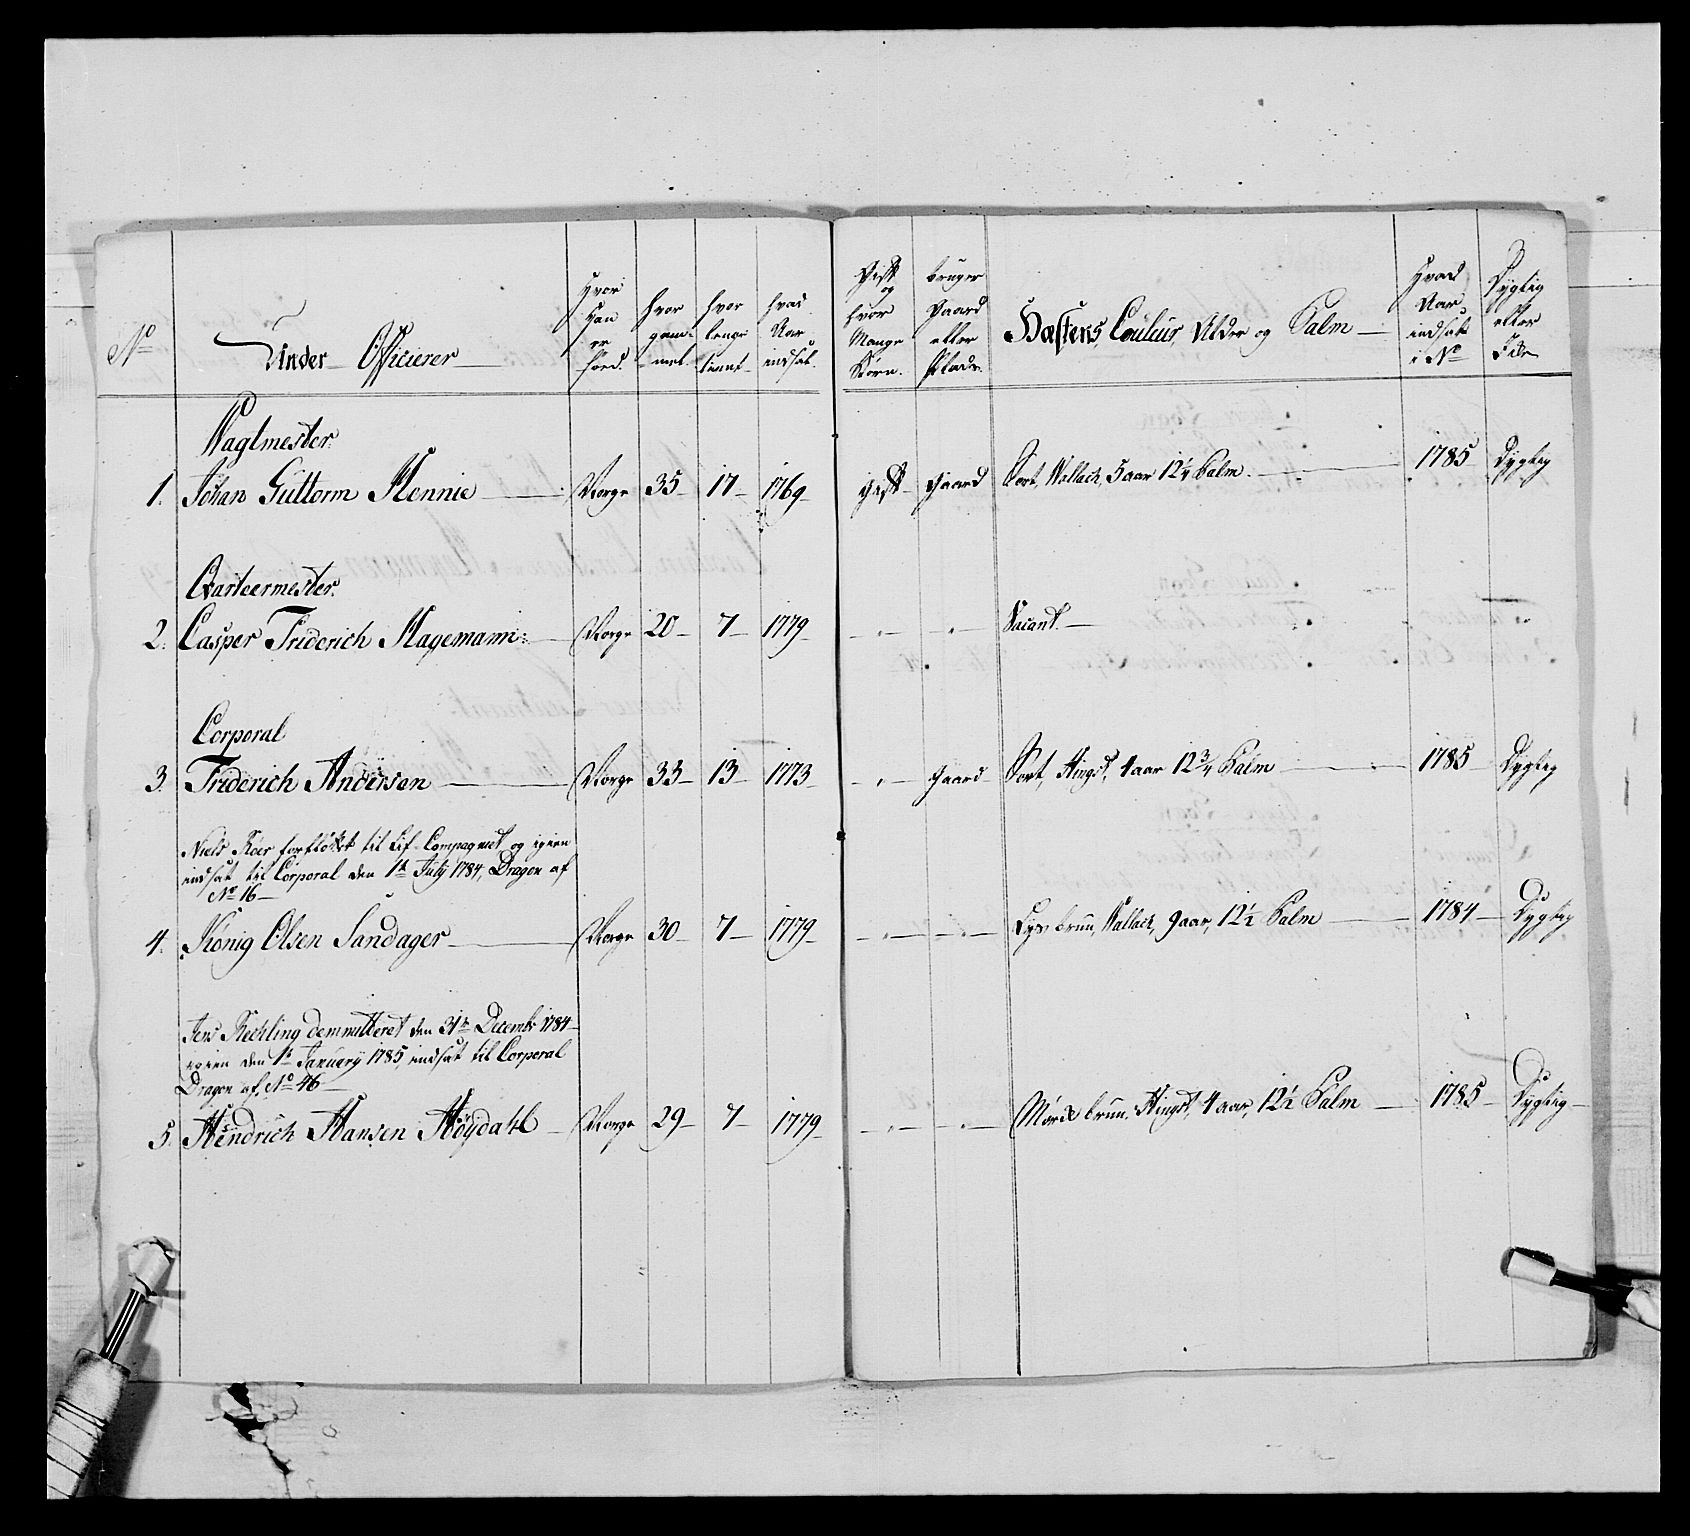 No
Under Officierer
Hvor
Han
er
föed.
hvor
gam-
mel.
hvor
lenge
tient
hvad
Aar
indsat.
Gift
og
hvor
Mange
Börn.
bruger
Gaard
eller
Plads.
Hæstens, Couluer, Alder og Palm
Hvad
Aar
indsat
i No
Dygtig
eller
Ey
Wagtmester
1. Johan Guttorm Mennie Norge 35 17 1769 gift Gaard Sort, Wallach, 5 aar 12 1/4 Palm. 1785 Dygtig
Qvarteermester.
2. Casper Friderich Hagemann: Norge 20 7 1779 Vacant.
Corporal
3. Friderich Andersen Norge 33 13 1773 Gaard Sort, Hingst, 4 aar 12 3/4 Palm 1785 Dygtig
Niels Röer forflöttet til Lif-Compagniet og igien
indsat til Corporal den 1te July 1784, Dragon af
No 16
4. König Olsen Sandager Norge 30 7 1779 Lys brun, Wallach, 9 aar, 12 1/2 Palm 1784 Dygtig
Jens Kechling demmitteret den 31te Decembr 1784
igien den 1te January 1785, indsat til Corporal
Dragon af No 46
5. Hendrich Hansen Höydahl Norge 29 7 1779 Mörk brun Hingst, 4 aar, 12 1/2 Palm 1785 Dygtig